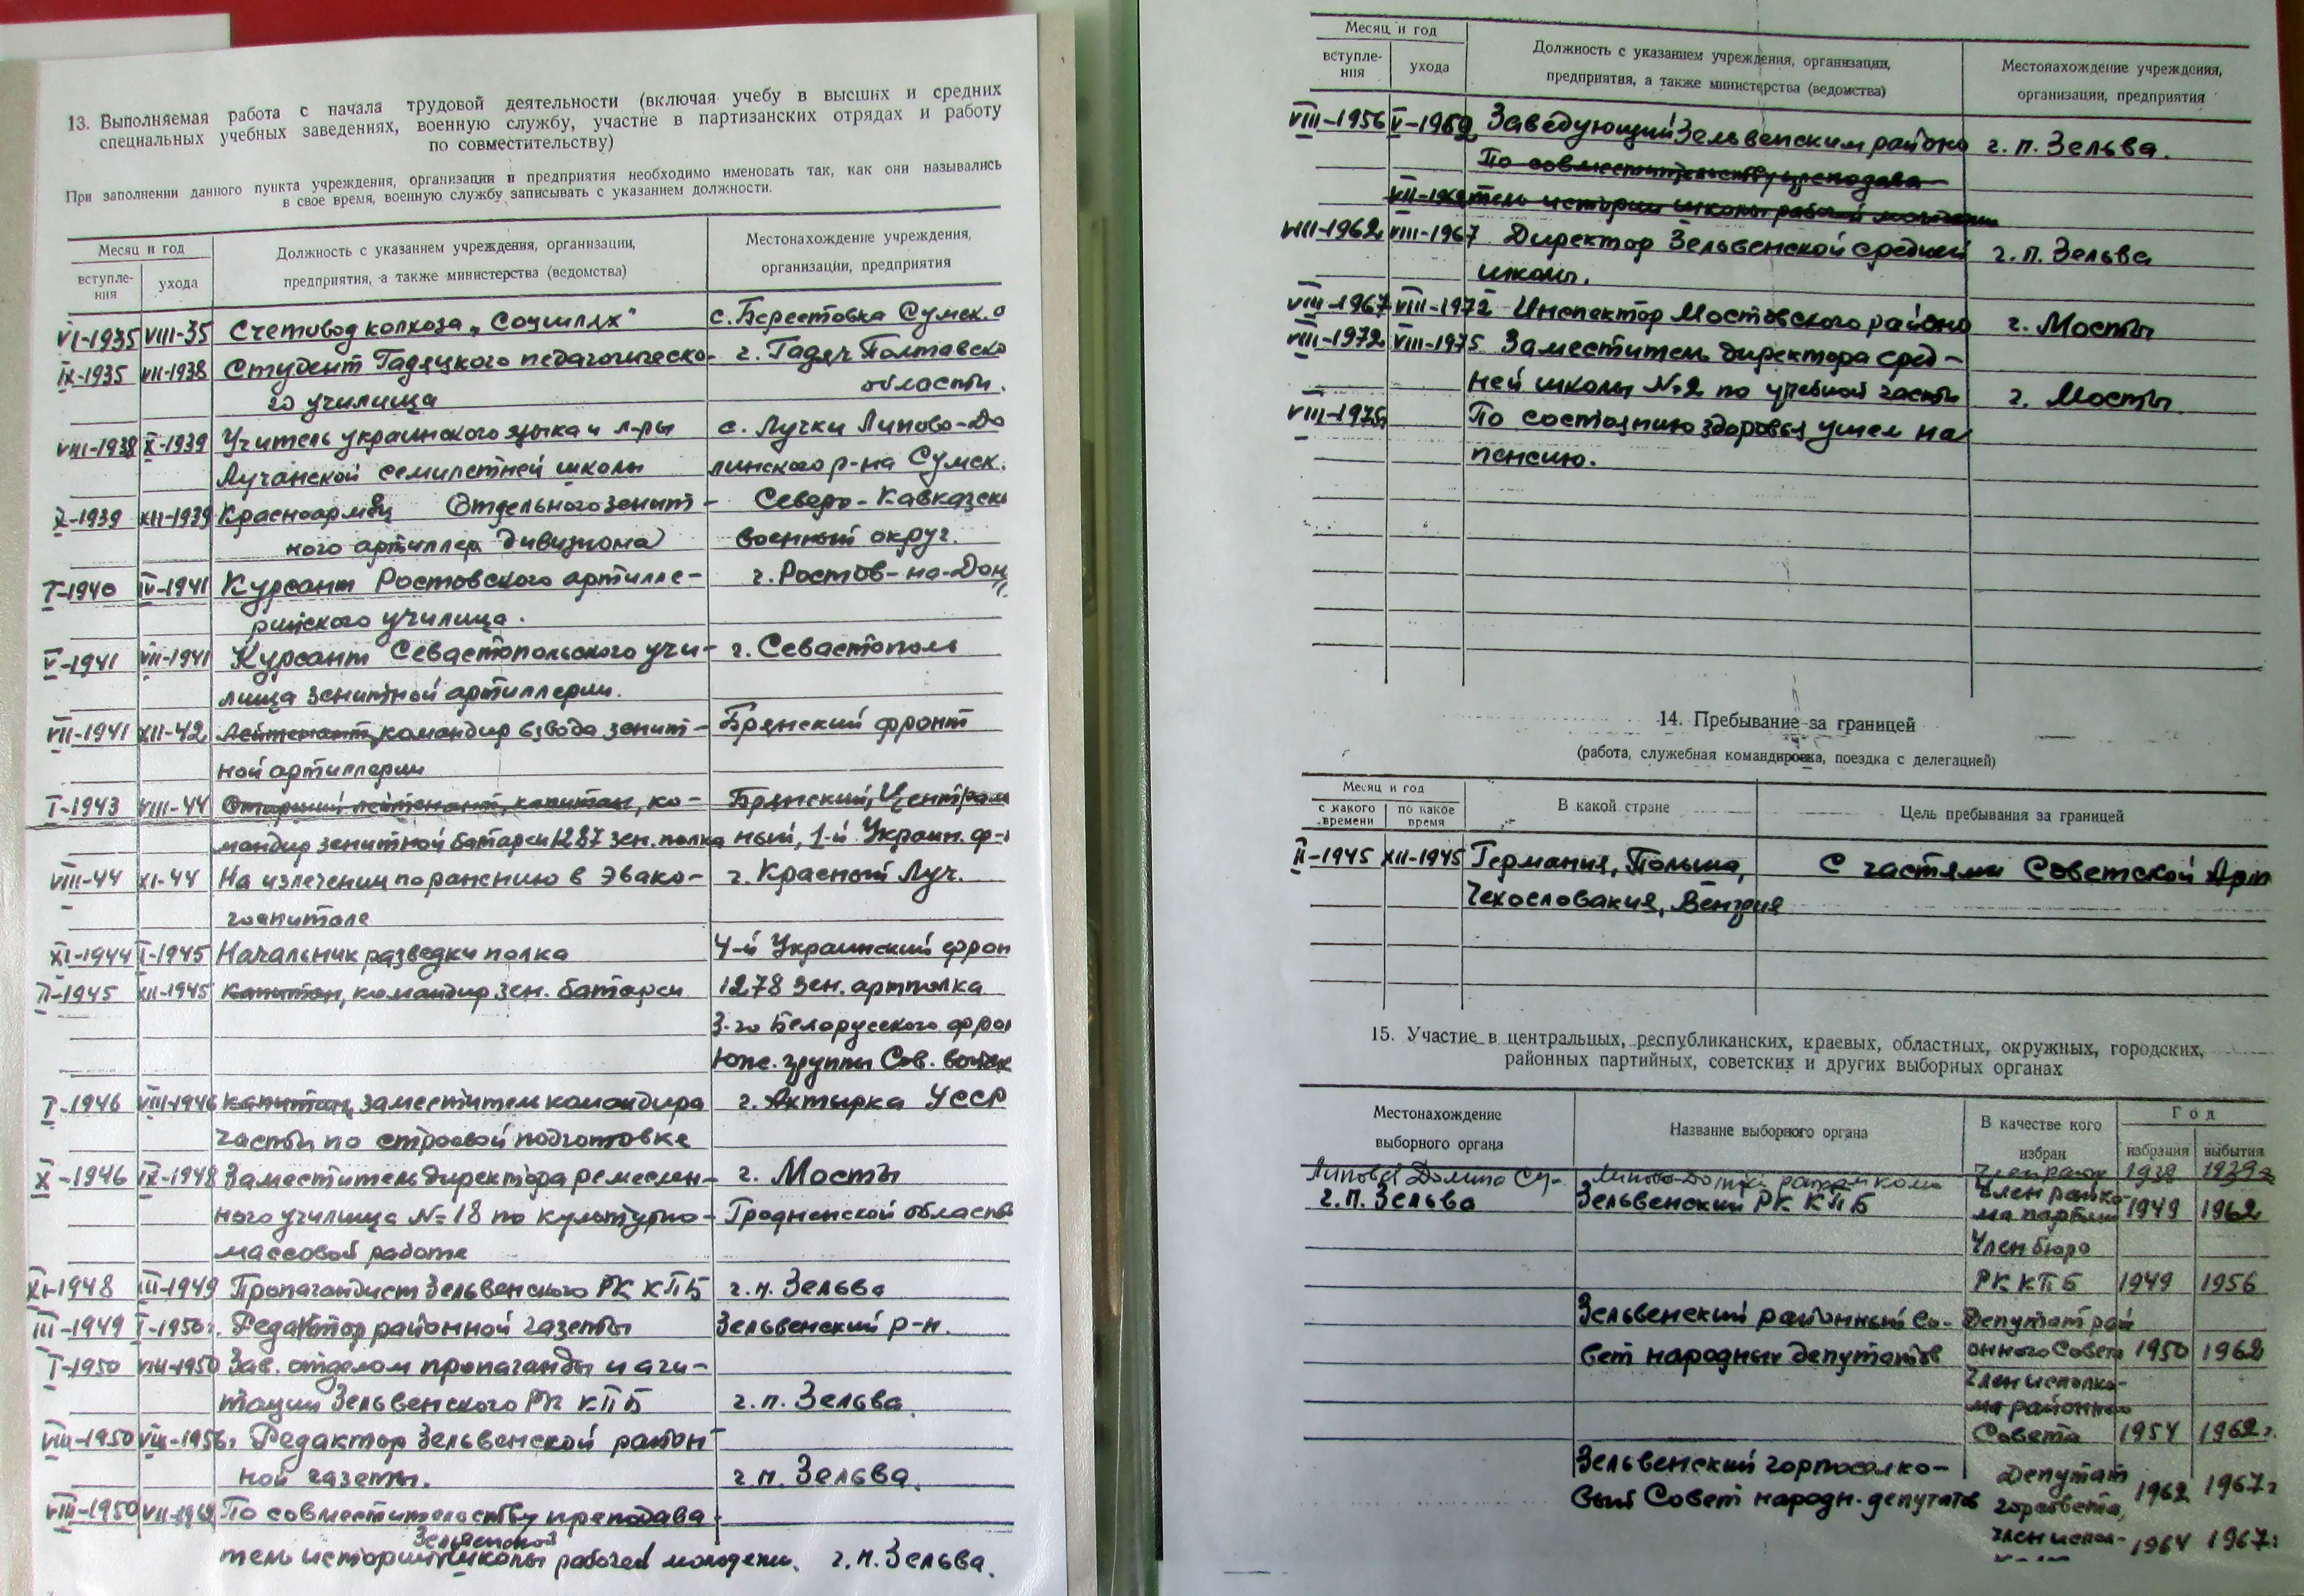 13. Выполняемая работа с начала трудовой деятельности (включая учебу в высших и средних
специальных учебных заведениях, военную службу, участие в партизанских отрядах и работу
по совместительству)
При заполнении данного пункта учреждения, организации и предприятия необходимо именовать так, как они назывались
в свое время, военную службу записывать с указанием должности.
Месяц и год
вступле-
ния
ухода
Должность с указанием учреждения, организации,
предприятия, а также министерства (ведомства)
Местонахождение учреждения,
организации, предприятия
VI-1935 VIII-35 Счетовод колхоза „Социалах" с. Берестовка Сумск. о
IX-1935 VII-1938 Студент Гадяцкого педагогическо- г. Гадяч Полтавско
го училища области.
VIII-1938 X-1939 Учитель украинского языка и л-ры с. Лучки Липово-До
Лучанской семилетней школы линского р-на Сумск.
X-1939 XII-1939 Красноармец Отдельного зенит- Северо-Кавказск
ного артиллер дивизиона военный округ.
I-1940 IV-1941 Курсант Ростовского артилле- г. Ростов-на-Дону
рийского училища.
V-1941 VII-1941 Курсант Севастопольского учи- г. Севастополь
лища зенитной артиллерии.
VII-1941 XII-42 Лейтенант, командир взвода зенит- Брянский фронт
ной артиллерии
I-1943 VIII-44 Старший лейтенант, капитан, ко- Брянский, Централь
мандир зенитной батареи 1287 зен. полка ный, 1-й Украин. ф-
VIII-44 XI-44 На излечении по ранению в эвако- г. Красный Луч.
госпитале
XI-1944 I-1945 Начальник разведки полка 4-й Украинский фрон
II-1945 XII-1945 Капитан, командир зен. батареи 1278 зен. артполка
3-го Белорусского фрон
Юж. группы Сов. войск
I-1946 VIII-1946 капитан, заместитель командира г. Ахтырка УССР
части по строевой подготовке
X-1946 IX-1948 Заместитель директора ремеслен- г. Мосты
ного училища №18 по культурно- Гродненской области
массовой работе
XI-1948 III-1949 Пропагандист Зельвенского РК КПБ г.п. Зельва
III-1949 I-1950г. Редактор районной газеты Зельвенский р-н.
I-1950 VIII-1950 Зав. отделом пропаганды и аги-
тации Зельвенского РК КПБ г.п. Зельва
VIII-1950 VIII-1956г. Редактор Зельвенской район-
ной газеты. г.п. Зельва.
VIII-1950 VII-1962 По совместительству преподава-
Зельвенской
тель истории школы рабочей молодежи. г.п. Зельва.
Месяц и год
вступле-
ния
ухода
Должность с указанием учреждения, организации,
предприятия, а также министерства (ведомства)
Местонахождение учреждения,
организации, предприятия
VIII-1956 V-1962 Заведующий Зельвенским районо г. п. Зельва.
По совместительству преподава-
VII-1962 тель истории школы рабочей молодежи
VIII-1962 VIII-1967 Директор Зельвенской средней г. п. Зельва
школы.
VIII-1967 VIII-1972 Инспектор Мостовского районо г. Мосты
VIII-1972 VIII-1975 Заместитель директора сред-
ней школы №2 по учебной части г. Мосты
VIII-1975 По состоянию здоровья ушел на
пенсию.
14. Пребывание за границей
(работа, служебная командировка, поездка с делегацией)
Месяц и год
с какого
времени
по какое
время
В какой стране
Цель пребывания за границей
II-1945 XII-1945 Германия, Польша, С частями Советской Арм
Чехословакия, Венгрия
15. Участие в центральных, республиканских, краевых, областных, окружных, городских,
районных партийных, советских и других выборных органах
Местонахождение
выборного органа
Название выборного органа
В качестве кого
избран
Год
избрания
выбытия
Липовая Долина Су- 1939г
г.п. Зельва Зельвенский РК КПБ Член райко-
ма партии 1949 1962
Член бюро
РК КПБ 1949 1956
Зельвенский районный Со- Депутат рай
вет народных депутатов онного Совета 1950 1962
Член исполко-
ма районного
Совета 1954 1962г.
Зельвенский горпоселко- Депутат
вый Совет народн. депутатов горсовета, 1962 1967г
член испол- 1964 1967г